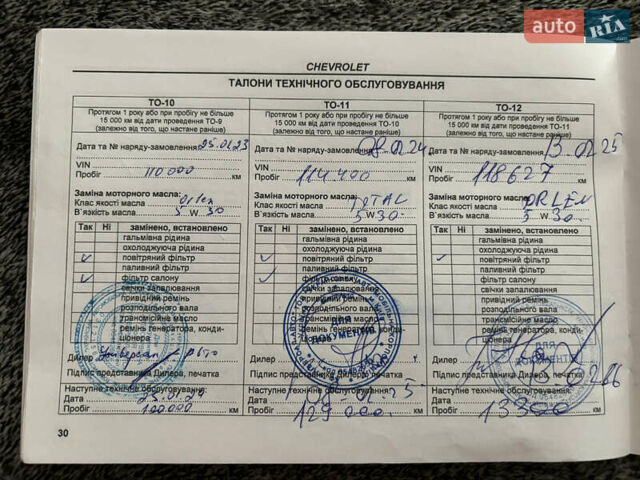 auto RIA.com
CHEVROLET
ТАЛОНИ ТЕХНІЧНОГО ОБСЛУГОВУВАННЯ
ТО-10
Протягом 1 року або при пробігу не більше
15 000 км від дати проведення ТО-9
(залежно від того, що настане раніше)
Дата та № наряду-замовлення
VIN
Пробіг 110 000 км
Заміна моторного масла:
Клас якості масла
В`язкість масла 5 W 30
Так Ні замінено, встановлено
гальмівна рідина
охолоджуюча рідина
повітряний фільтр
паливний фільтр
фільтр салону
свічки запалювання
привідний ремінь
розподільного вала
трансмісійне масло
ремінь генератора, конди-
ціонера
Дилер Універсал - Авто
Підпис представника Дилера, печатка
Наступне технічне обслуговування:
Дата
Пробіг км
ТО-11
Протягом 1 року або при пробігу не більше
15 000 км від дати проведення ТО-10
(залежно від того, що настане раніше)
Дата та № наряду-замовлення
VIN
Пробіг 114 400 км
Заміна моторного масла:
Клас якості масла TOTAL
В`язкість масла 5 W 30
Так Ні замінено, встановлено
гальмівна рідина
охолоджуюча рідина
повітряний фільтр
паливний фільтр
фільтр салону
свічки запалювання
привідний ремінь
розподільного вала
трансмісійне масло
ремінь генератора, конди-
ціонера
ДЛЯ
ДОКУМЕНТІВ
Дилер
Підпис представника Дилера, печатка
Наступне технічне обслуговування:
Дата
Пробіг 129 000 км
ТО-12
Протягом 1 року або при пробігу не більше
15 000 км від дати проведення ТО-11
(залежно від того, що настане раніше)
Дата та № наряду-замовлення 13.02.25
VIN
Пробіг 118627 км
Заміна моторного масла:
Клас якості масла ORLEN
В`язкість масла 5 W 30
Так Ні замінено, встановлено
гальмівна рідина
охолоджуюча рідина
повітряний фільтр
паливний фільтр
фільтр салону
свічки запалювання
привідний ремінь
розподільного вала
трансмісійне масло
ремінь генератора, конди-
ціонера
ДЛЯ
ДОКУМЕНТІВ
Дилер
Підпис представника Дилера, печатка
Наступне технічне обслуговування:
Дата
Пробіг км
30